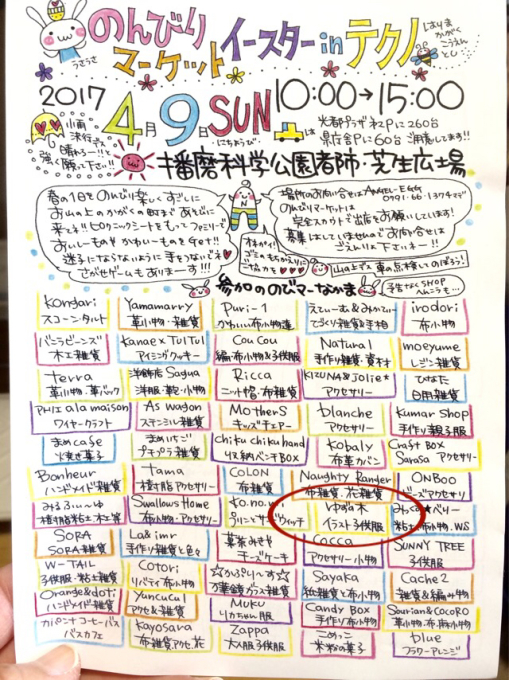 のんびり
マーケット イースター in テクノ
うさうさ
はりま
かがく
こうえん
とし
2017 4月9日 SUN 10:00→15:00
(にちようび)
小雨
決行です
晴れろ〜!!と
強く願って下さい!!
光都プラザ ネコPに260台
県庁舎Pに60台 ご用意してます!!
播磨科学公園都市・芝生広場
春の1日をのんびり楽しくすごしに
お山の上のかがくの町まであそびに
来てネ!! ピクニックシートをもってファミリーで
おいし〜ものやかわい〜ものをGet!!
迷子にならないように手をつないでネ
さがせゲームもあります〜!!!
N
場所のお問い合せはANGEL-EGG
0791・66・1374まで
のんびりマーケットは
完全スカウトで出店をお願いしています!
募集はしていませんのでお問合せは
ごえんりょ下さいネー!!
ゴミのもちかえりに
ご協力を
山の上です 車の点検してのぼろう!
参加ののびマーなかま
予告なくSHOP
へんこうも…
Kongari
スコーンタルト
Yamamarry
革小物・雑貨
Puri-1
かわいい布小物達
えてぃーむ&みかてぃー
てづくり雑貨&手相
irodori
布小物
バニラビーンズ
木工雑貨
Kanae×TUITUI
アイシングクッキー
CouCou
編・布小物&子供服
Natural
手作り雑貨・資材
moeyume
レジン雑貨
terra
革小物・革バック
洋飾店 Sagua
洋服・鞄・小物
Ricca
ニット帽・布雑貨
KIZUNA&Jolie*
アクセサリー
ひなた
日用雑貨
PHIE ala maison
ワイヤークラフト
As wagon
ステンシル雑貨
MotherS
キッズチェアー
blanche
アクセサリー
Kumar Shop
手作り親子服
まめcafe
焼き菓子
まめいちご
プチプラ雑貨
chiku chiku hand
収納ベンチBOX
Kobaly
布革カバン
Craft Box
Sarasa アクセサリー
Bonheur
ハンドメイド雑貨
tama
樹脂アクセサリー
COLON
布雑貨
Naughty Ranger
布雑貨・花雑貨
ONBOO
ビーズアクセサリ
みるふぃ〜ゆ
樹脂粘土・木工等
Swallows Home
布小物・アクセサリー
ゆずの木
イラスト子供服
みっく★ベリー
粘土・布小物・WS
SORA
SORA雑貨
La&imr
手作り雑貨と色々
菓茶みせ
チーズケーキ
Cocca
アクセサリー小物
SUNNY TREE
子供服
W-TAIL
子供服・粘土雑貨
Cotori
リバティ布小物
☆かぷり〜す☆
万華鏡ガラス雑貨
Sayaka
紙雑貨と布小物
Cache2
雑貨&編み物
Orange&doti
ハンドメイド雑貨
Yuncucul
アクセ&雑貨
MUKU
リカちゃん服
Candy Box
手作り布小物
Sourian&COCORO
革小物・布・麻小物
カバウントコーヒーバス
バスカフェ
Kayosara
布雑貨アクセ、花
Zappa
大人服子供服
こめっこ
米粉の菓子
blue
フラワーアレンジ